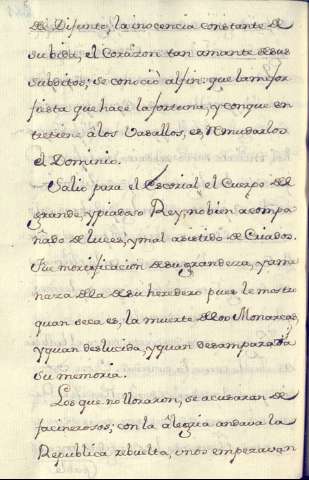 de Difunto, la inocencia constante de
su bida, el Corazon tan amante de sus
subditos; se conoció al fin: que la mejor
fiesta que hace la fortuna, y con que en
tretiene á los Vasallos, es Rmudarlos
el Dominio.
Salió para el Escorial el Cuerpo del
grande, y piadoso Rey, no bien acompa
ñado de luces, y mal asistido de Criados.
Fue mortificacion de su grandeza, y ame
naza de la de su heredero pues le mostro
quan seca es, la muerte de los Monarcas,
y quan deslucida, y quan desamparada
su memoria.
Los que no lloraron, se acusaran de
facinerosos; con la alegria andava la
Republica rebuelta, unos empezavan